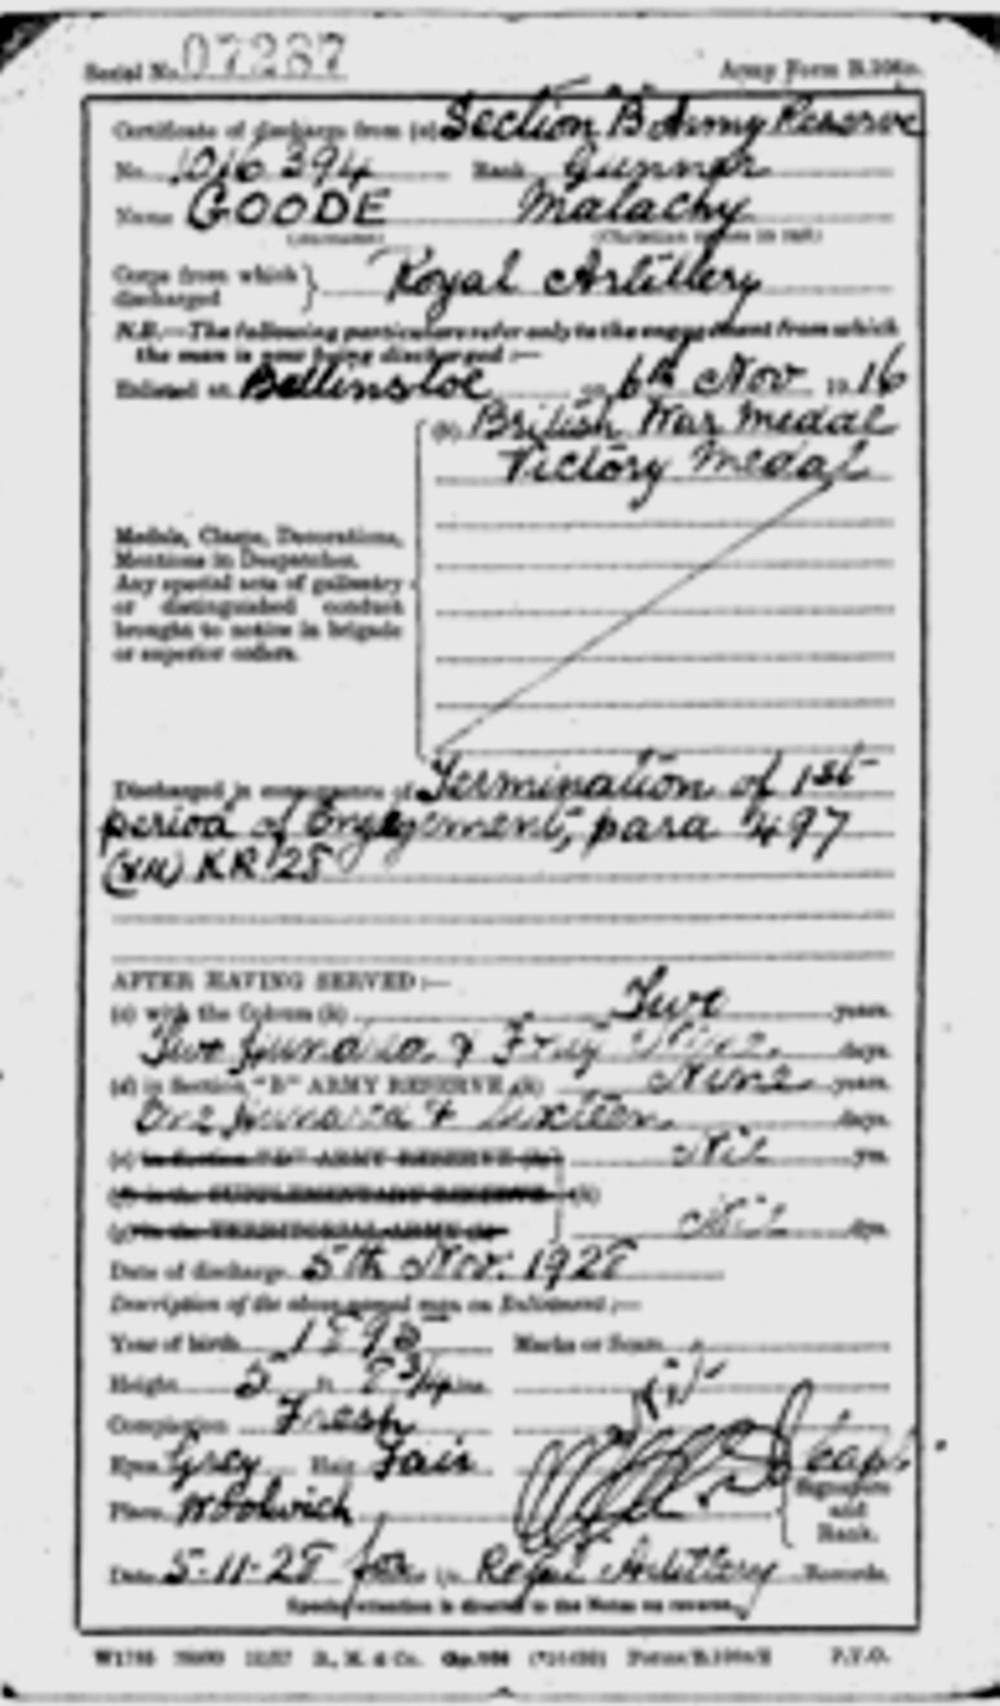 Serial No. 07287 Army Form B.108
Certificate of discharge from (a) Section B Army Reserve
No. 1016394 Rank Gunner
Name GOODE Malachy
(Surname) (Christian names in full)
Corps from which discharged } Royal Artillery
N.B.—The following particulars refer only to the engagement from which
the man is now being discharged :—
Enlisted at on 6th Nov 1916
(b) British War Medal
Victory Medal
Medals, Clasps, Decorations,
Mentions in Despatches.
Any special acts of gallantry
or distinguished conduct
brought to notice in brigade
or superior orders.
Discharged in consequence of Termination of 1st
period of Engagement, para 497
KR '28
AFTER HAVING SERVED :—
(c) with the Colours (k) Two years.
Two Hundred & Nine days.
(d) in Section "B" ARMY RESERVE (k) Nine years.
One Hundred & Sixteen days.
(e) in Section "D" ARMY RESERVE (k) Nil yrs.
(f) in the SUPPLEMENTARY RESERVE (k)
(g) in the TERRITORIAL ARMY (k) Nil dys.
Date of discharge 5th Nov. 1928
Description of the above-named man on Enlistment :—
Year of birth 1895 Marks or Scars
Height 5 ft. 8 3/4 ins. Nil
Complexion Fresh
Eyes Grey Hair Fair Capt
Signature
and
Rank.
Place Woolwich
Date 5-11-28 for i/c Royal Artillery Records.
Special attention is directed to the Notes on reverse.
P.T.O.